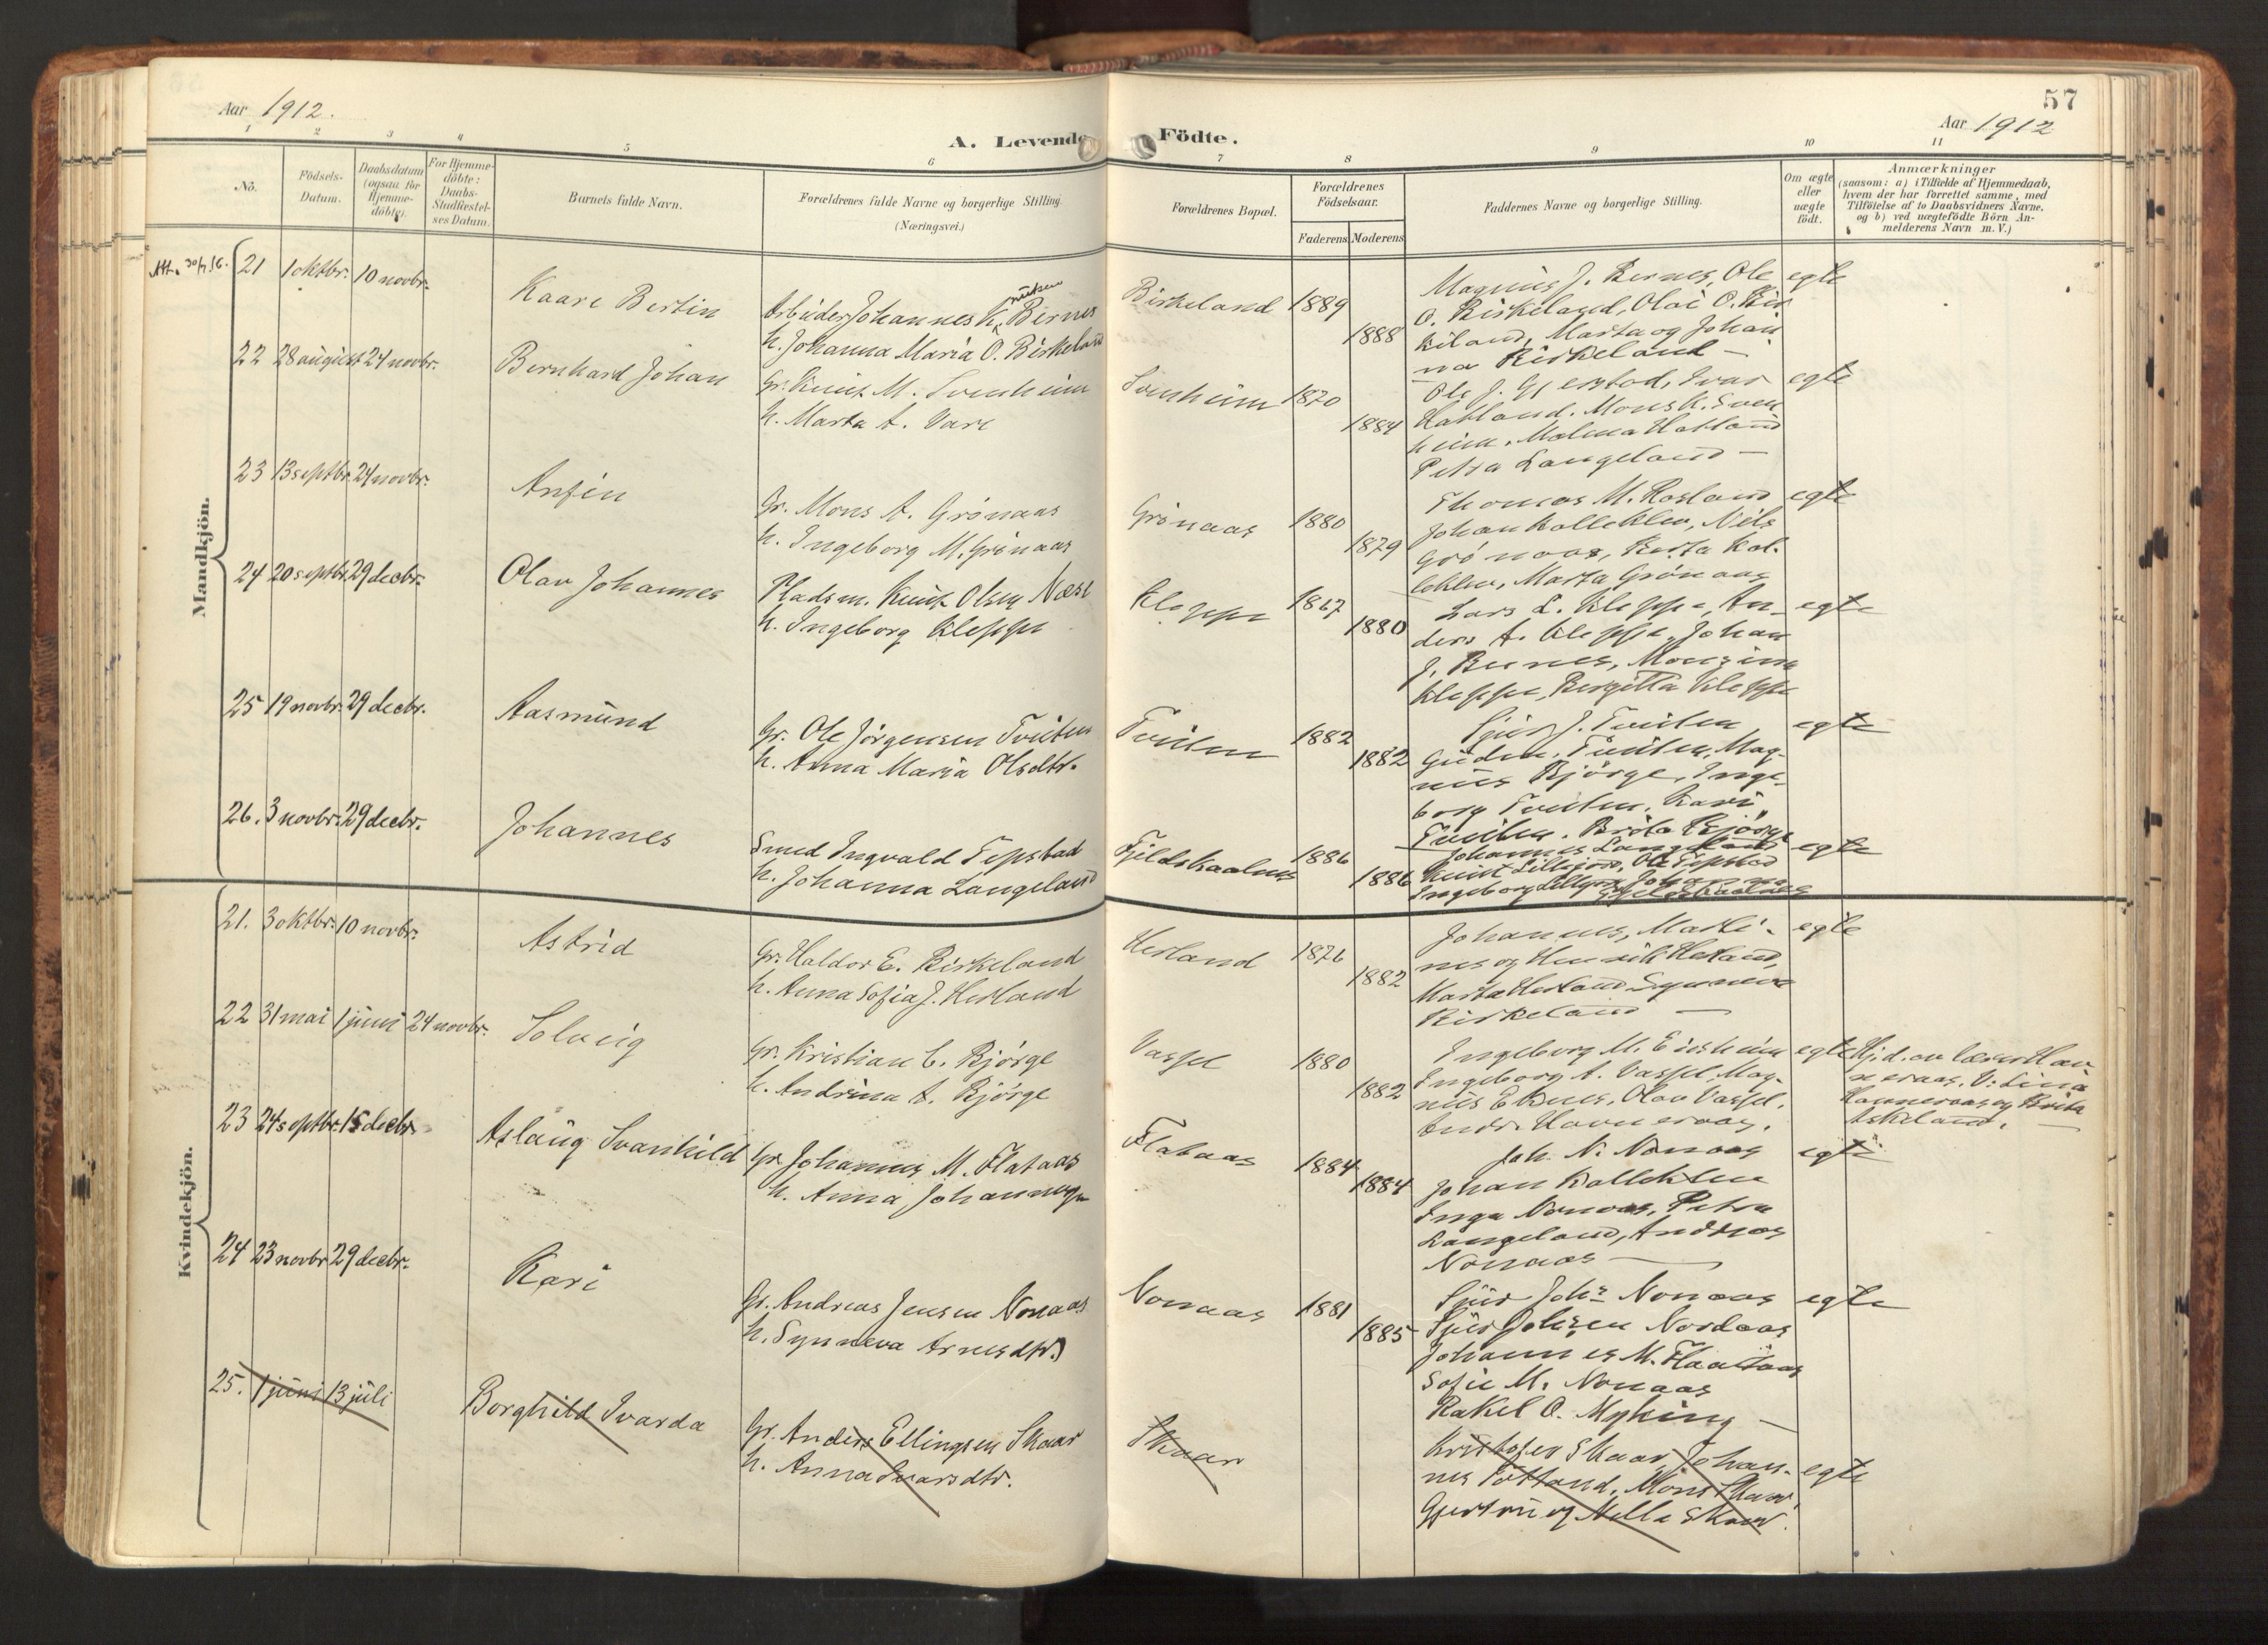 57
Aar 1912.
Aar 1912
A. Levende Födte.
1 2 3 4 5 6 7 8 9 10 11
No.
Födsels-Datum.
Daabsdatum (ogsaa for Hjemme-döbte).
For Hjemme-döbte: Daabs-Stadfæstel-ses Datum.
Barnets fulde Navn.
Forældrenes fulde Navne og borgerlige Stilling.
(Næringsvei.)
Forældrenes Bopæl.
Forældrenes Födselsaar.
Faderens Moderens
Faddernes Navne og borgerlige Stilling.
Om ægte eller uægte födt.
Anmærkninger
(saasom: a) i Tilfælde af Hjemmedaab,
hvem der har forrettet samme, med
Tilföielse af to Daabsvidners Navne.
og b) ved uægtefödte Börn An-
melderens Navn m. V.)
Mandkjön.
Att. 30/7.16.
21 1 oktbr. 10 novbr. Kaare Bertin
Arbeider Johannes K. Birnes
h. Johanna Maria O. Birkeland
Birkeland 1889 1888
Magnus J. Bernes, Ole
O. Birkeland, Olai O. Bir
keland, Marta og Johan
na Birkeland —
egte
22 28 august 24 novbr. Bernhard Johan
Gr. Knut M. Svenheim
h. Marta A. Vare
Svenheim 1870 1884
Ole J. Gjerstad, Ivar
Hatland. Mons K. Sven
heim. Malena Hatland
Petra Langeland —
egte
23 13 septbr. 24 novbr. Anfin
Gr. Mons A. Grönaas
h. Ingeborg M. Grönaas
Grönaas 1880 1879
Thomas M. Rosland
Johan Kolleklev, Nils
Grönaas, Berta Kol-
leklev, Marta Grönaas
egte
24 20 septbr. 29 decbr. Olav Johannes
Pladsm. Knut Olsen Næse
h. Ingeborg Kleppe
Kleppe 1867 1880
Lars L. Kleppe, An-
ders A. Kleppe, Johan
J. Bernes, Monsina
Kleppe, Bergitta Kleppe
egte
25 19 novbr. 29 decbr. Aasmund
Gr. Ole Jörgensen Tveiten
h. Anna Maria Olsdtr.
Tveiten 1882 1882
Sjur J. Tveiten
Gudm. Tveiten, Mag-
nus Bjørge, Inge-
borg Tveiten, Kari
Tveiten. Brita Bjørge
egte
26. 3 novbr. 29 decbr. Johannes
Smed Ingvald Tepstad
h. Johanna Langeland
Fjeldskaalnes 1886 1886
Johannes Langeland
Knut Lillejord, Ole Tepstad
Ingeborg Lillejord Johanna
Fjeldskaalnes
egte
Kvindekjön.
21. 3 oktbr. 10 novbr. Astrid
Gr. Haldor E. Birkeland
h. Anna Sofia J. Hesland
Hesland 1876 1882
Johannes, Marti-
nus og Henrik Hesland,
Marta Hesland Synneva
Birkeland —
egte
22 31 mai 1 juni 24 novbr. Solveig
Gr. Kristian C. Bjørge
h. Andrina A. Bjørge
Vassel 1880 1882
Ingeborg M. Eidsheim
Ingeborg A. Vassel, Mag-
nus Eknes, Olav Vassel.
Andr. Havneraas.
egte
Hjd. av lærer Hav
neraas. V: Lina
Havneraas og Brita
Askeland.
23 24 septbr. 15 decbr. Aslaug Svanhild
Gr. Johannes M. Flataas
h. Anna Johannesen
Flataas 1884 1884
Joh. N. Nonaas
Johan Kolleklev
Inga Nonaas, Petra
Langeland, Andreas
Nonaas —
egte
24 23 novbr 29 decbr. Kari
Gr. Andreas Jensen Nonaas
h. Synneva Arnesdtr.
Nonaas 1881 1885
Sjur Johs. Nonaas
Sjur Johsen Nordaas
Johannes M. Flaataas
Sofie M. Nonaas
Rakel O. Myking —
egte
25. 1 juni 13 juli Borghild Ivarda
Gr. Anders Ellingsen Skaar
h. Anna Ivarsdtr.
Skaar
Kristofer Skaar, Johan-
nes Tötland, Mons Skaar
Gjertru og Nella Skaar.
egte